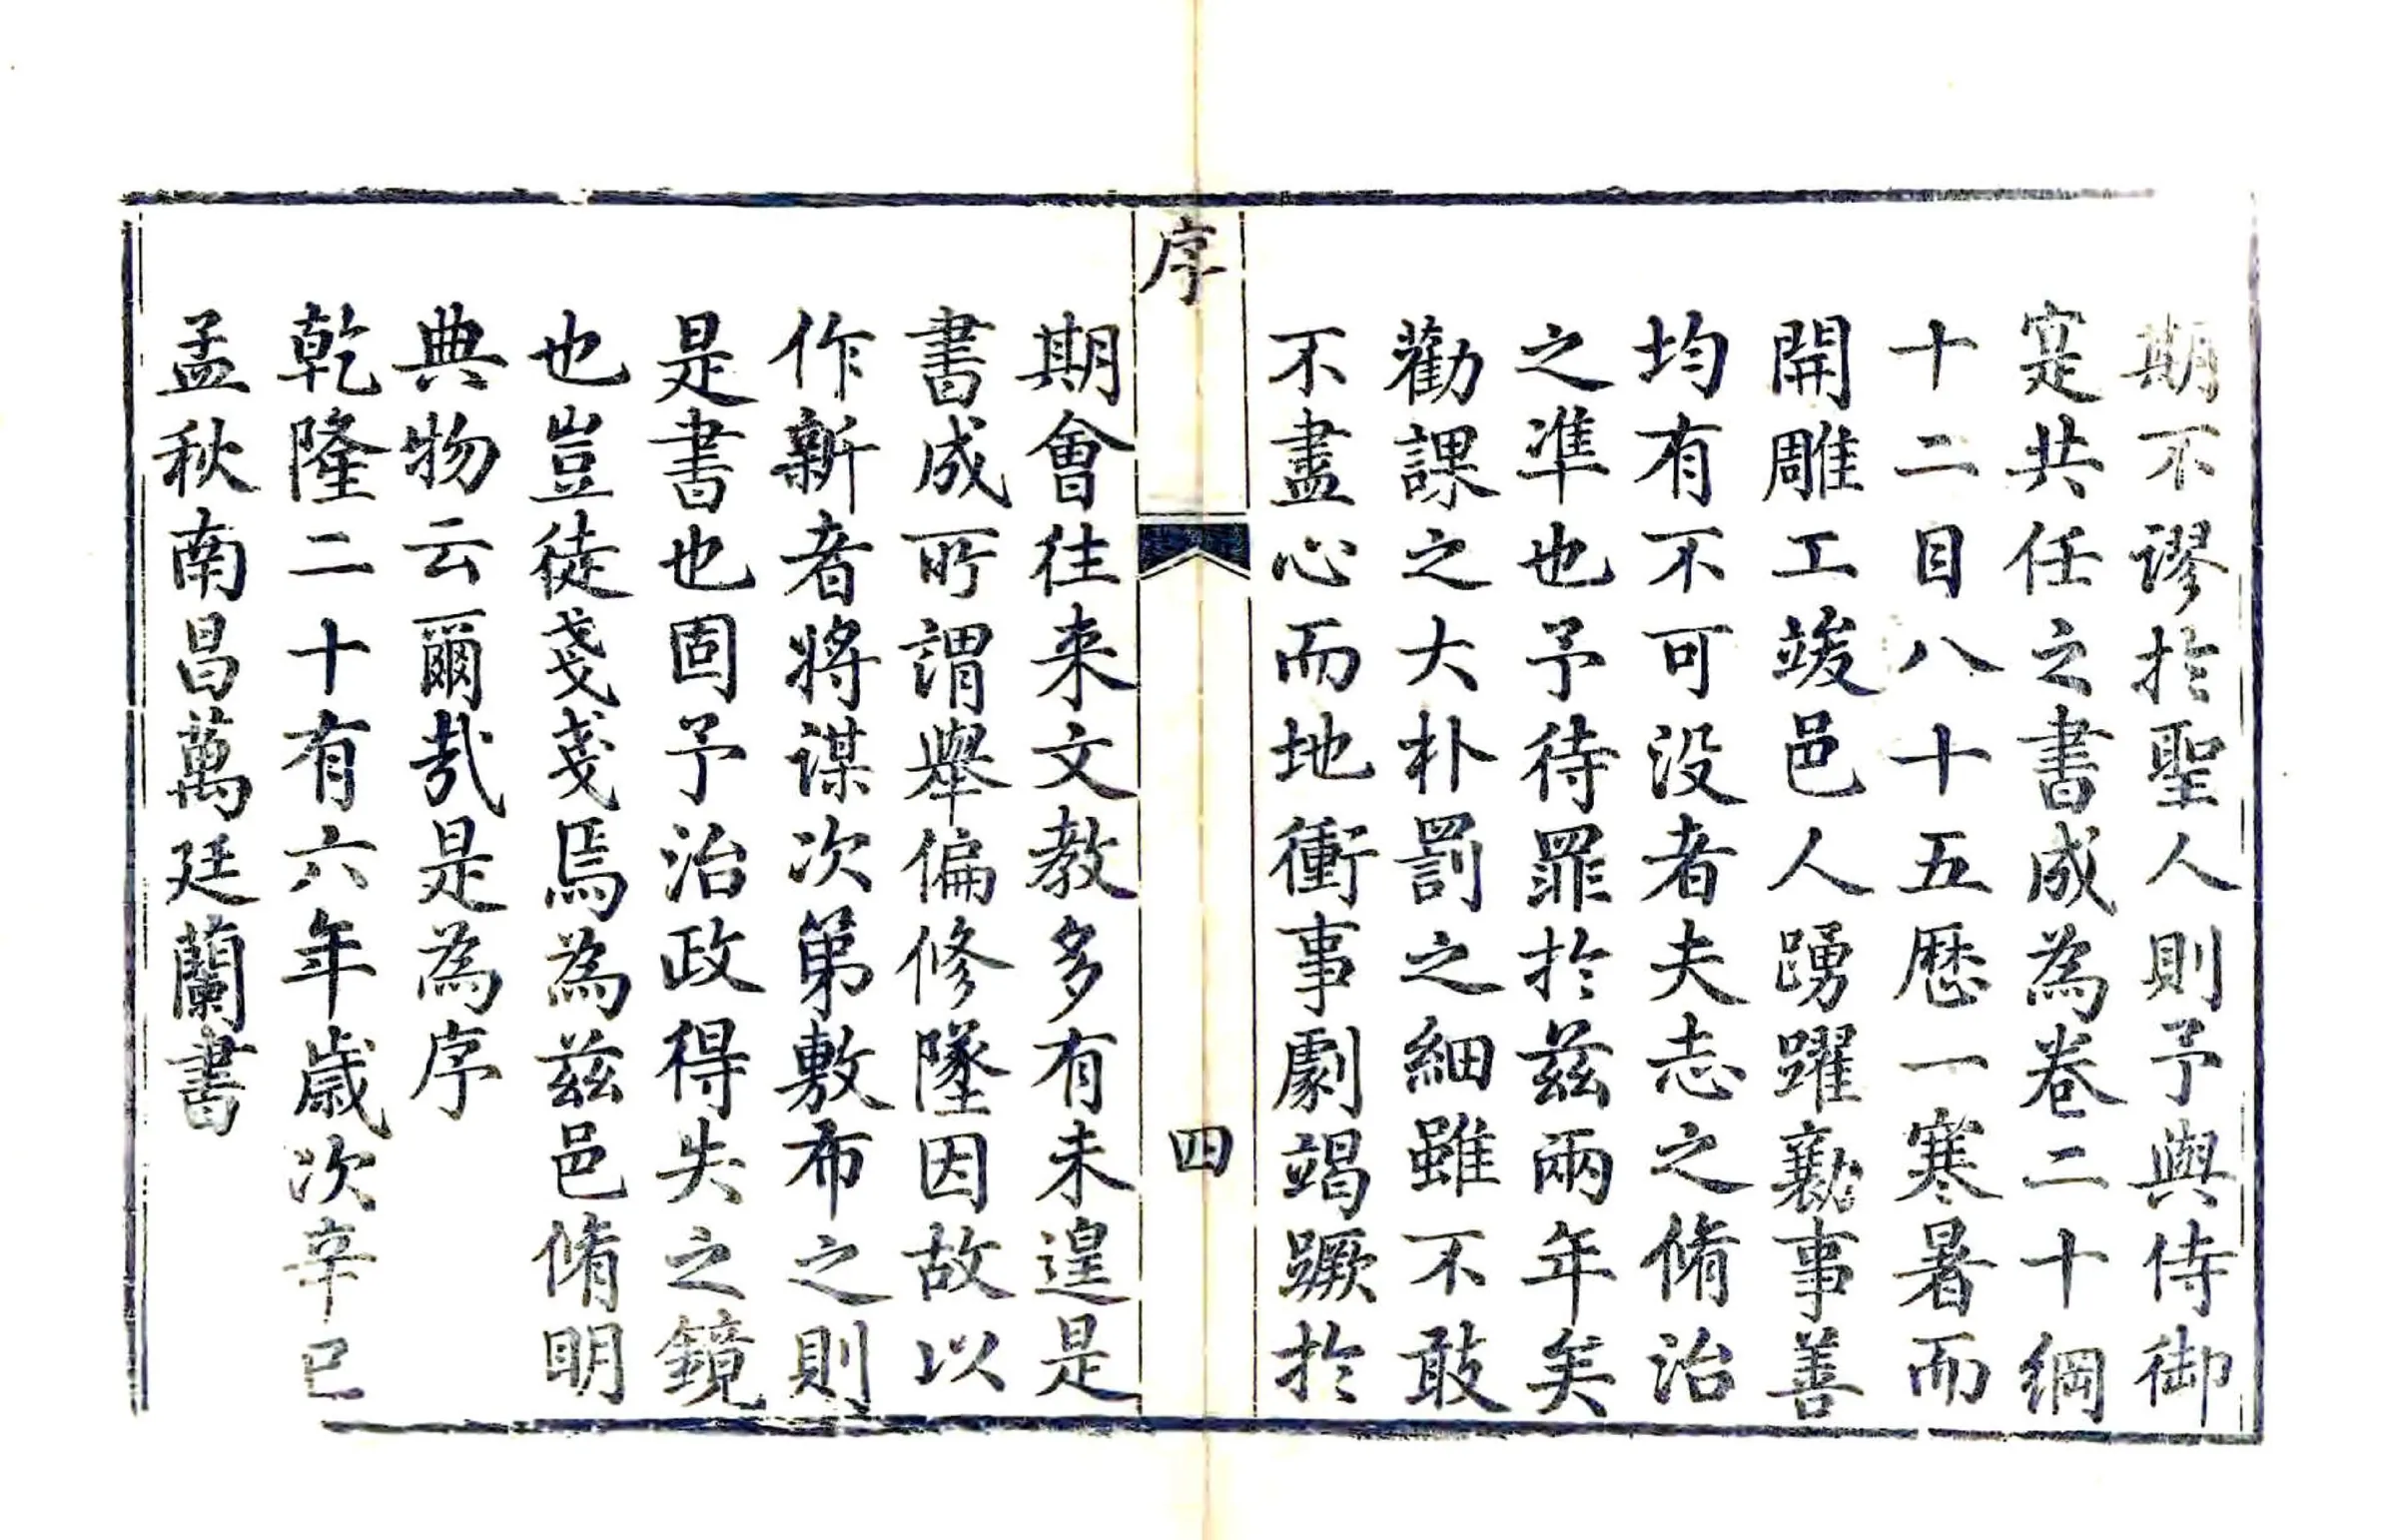 期不謬於聖人則予與侍御
寔共任之書成為卷二十綱
十二目八十五歷一寒暑而
開雕工竣邑人踴躍勷事善
均有不可没者夫志之脩治
之準也予待罪於兹兩年矣
勸課之大朴罰之細雖不敢
不盡心而地衝事劇竭蹶於
序
四
期會往来文教多有未遑是
書成所謂舉偏修墜因故以
作新者將謀次第敷布之則
是書也固予治政得失之鏡
也豈徒戔戔焉為兹邑脩明
典物云爾㢤是為序
乾隆二十有六年歲次辛巳
孟秋南昌萬廷蘭書